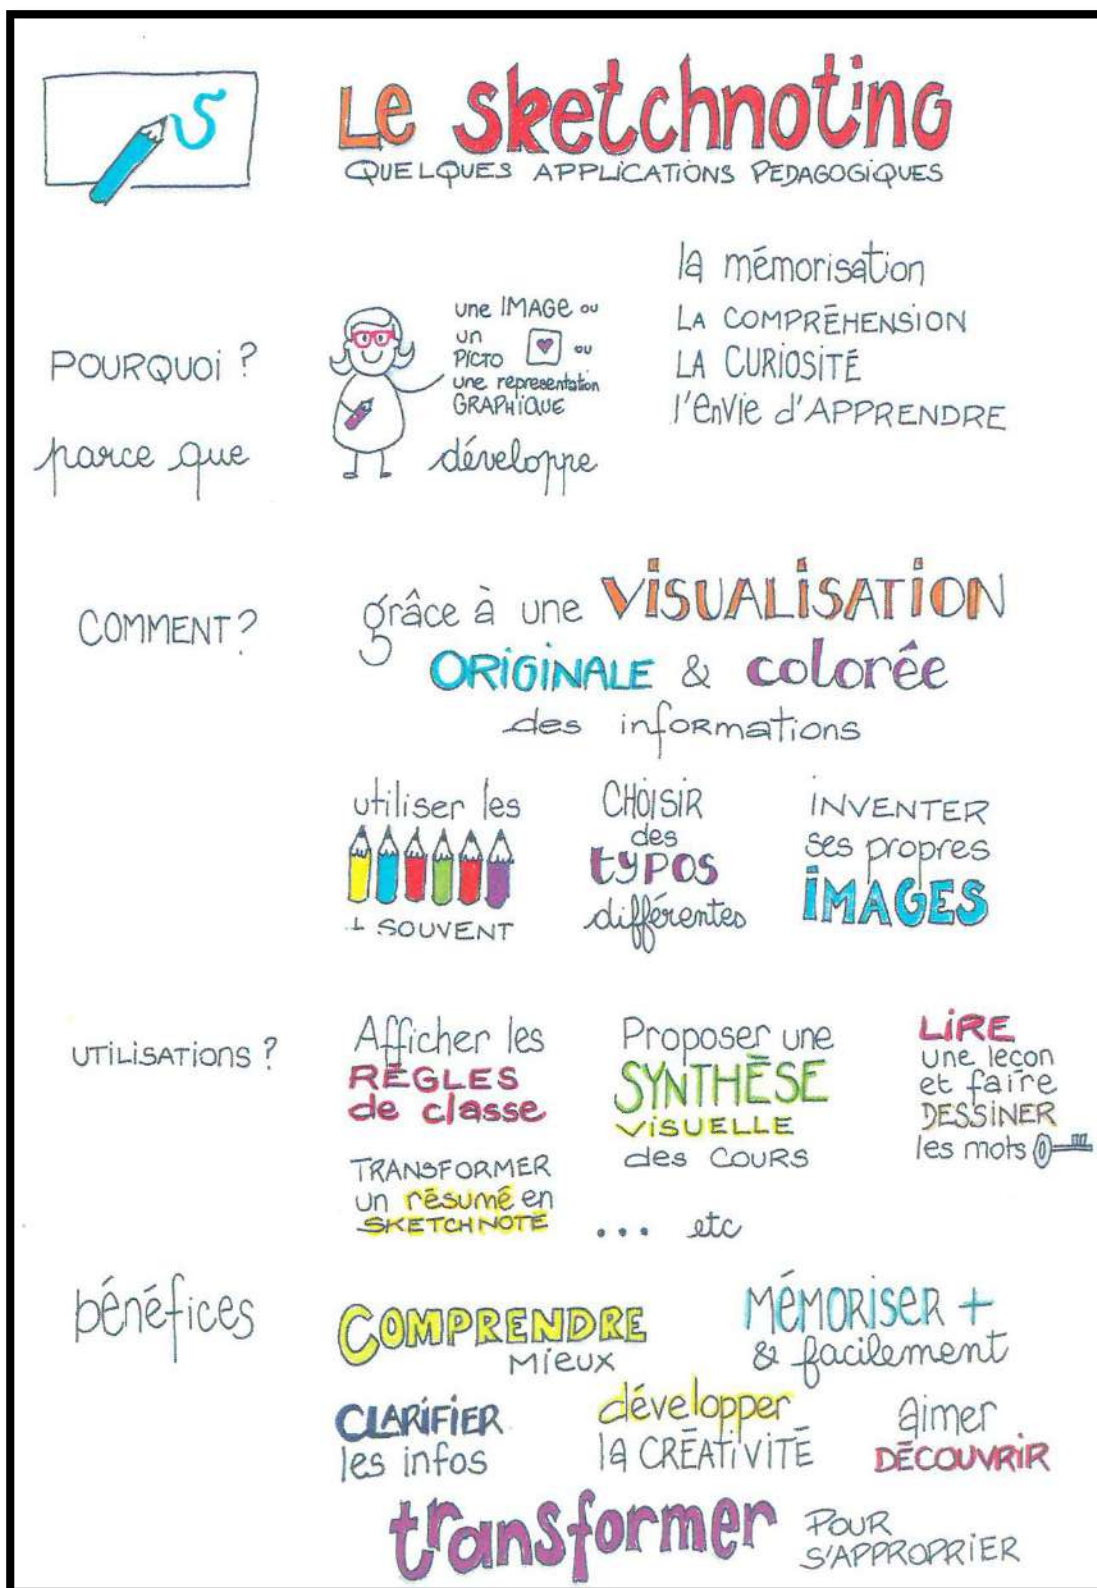 Le sketchnoting
QUELQUES APPLICATIONS PEDAGOGIQUES
POURQUOI ?
parce que
une IMAGE ou
un
PICTO ou
une representation
GRAPHIQUE
développe
la mémorisation
LA COMPRÉHENSION
LA CURIOSITÉ
l'envie d'APPRENDRE
COMMENT ?
grâce à une VISUALISATION
ORIGINALE & colorée
des informations
utiliser les
+ SOUVENT
CHOISIR
des
typos
différentes
INVENTER
ses propres
IMAGES
UTILISATIONS ?
Afficher les
RÈGLES
de classe
Proposer une
SYNTHÈSE
VISUELLE
des COURS
LIRE
une leçon
et faire
DESSINER
les mots
TRANSFORMER
un résumé en
SKETCHNOTE
... etc
bénéfices
COMPRENDRE
MIEUX
MÉMORISER +
& facilement
CLARIFIER
les infos
développer
la CRÉATIVITÉ
aimer
DÉCOUVRIR
transformer
POUR
S'APPROPRIER